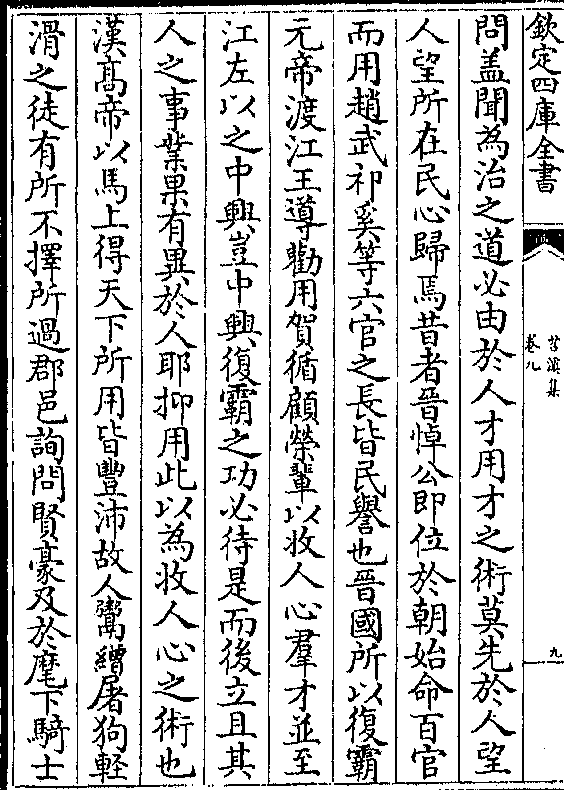 欽定四庫全書
卷九
九
問盖聞為治之道必由於人才用才之術莫先於人望
人望所在民心歸焉昔者晉悼公即位於朝始命百官
而用趙武祁奚等六官之長皆民譽也晉國所以復霸
元帝渡江王導勸用賀循顧榮輩以收人心羣才並至
江左以之中興豈中興復霸之功必待是而後立且其
人之事業果有異於人耶抑用此以為收人心之術也
漢髙帝以馬上得天下所用皆豐沛故人鬻繒屠狗軽
滑之徒有所不擇所過郡邑詢問賢豪及於麾下騎士